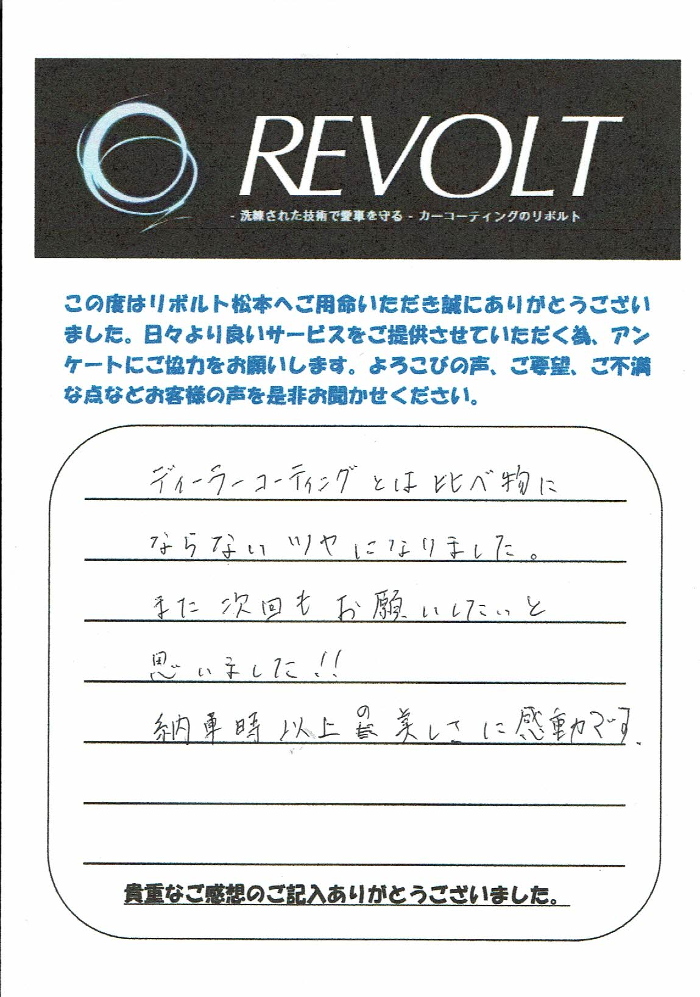 REVOLT
- 洗練された技術で愛車を守る - カーコーティングのリボルト
この度はリボルト松本へご用命いただき誠にありがとうござい
ました。日々より良いサービスをご提供させていただく為、アン
ケートにご協力をお願いします。よろこびの声、ご要望、ご不満
な点などお客様の声を是非お聞かせください。
ディーラーコーティングとは比べ物に
ならないツヤになりました。
また次回もお願いしたいと
思いました!!
納車時以上の美しさに感動です.
貴重なご感想のご記入ありがとうございました。